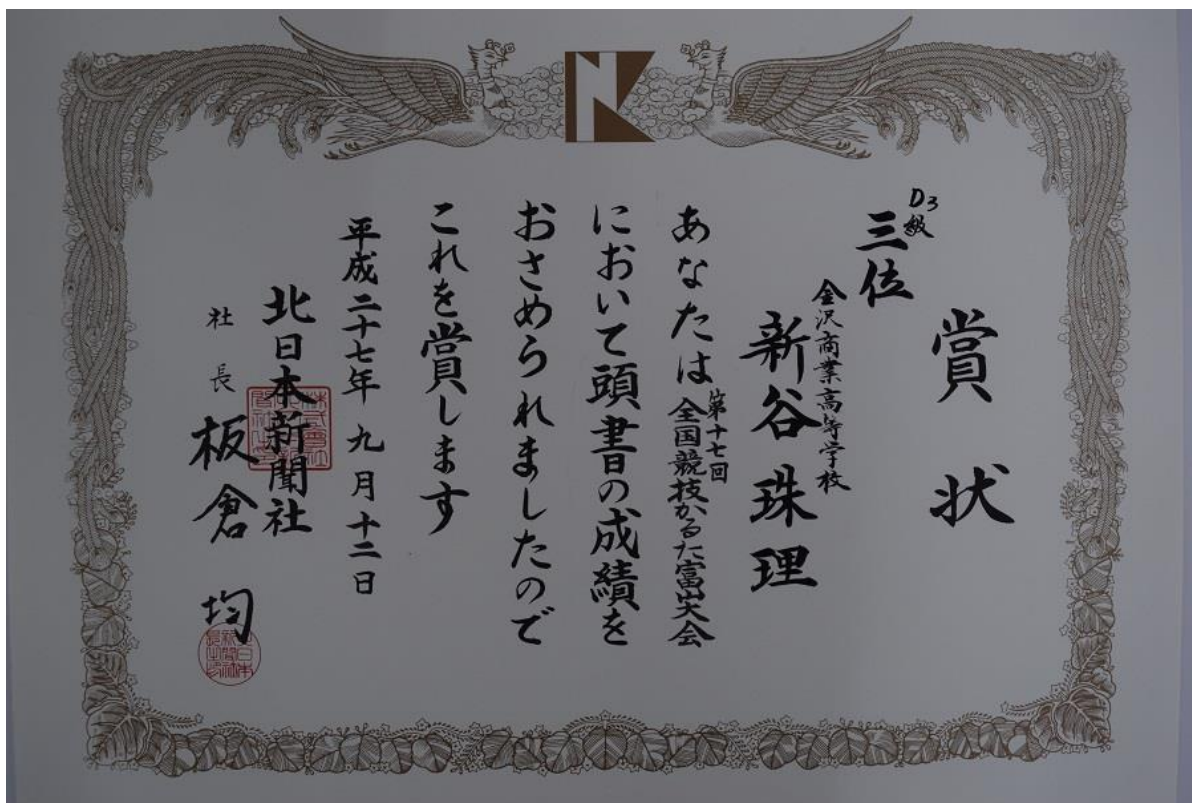 賞状
D3級
三位
金沢商業高等学校
新谷珠理
あなたは第十七回全国競技かるた富山大会
において頭書の成績を
おさめられましたので
これを賞します
平成二十七年九月十二日
北日本新聞社
社長 板倉 均